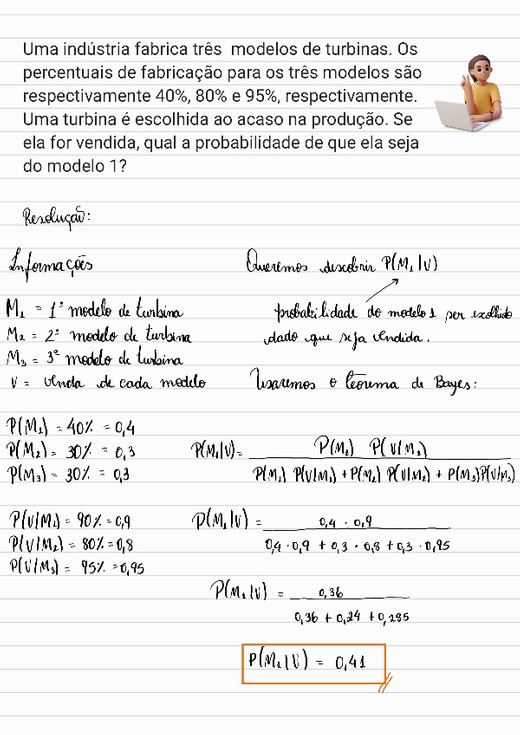 Uma indústria fabrica três modelos de turbinas. Os
percentuais de fabricação para os três modelos são
respectivamente 40%, 80% e 95%, respectivamente.
Uma turbina é escolhida ao acaso na produção. Se
ela for vendida, qual a probabilidade de que ela seja
do modelo 1?
Resolução:
Informações
M₁ = 1º modelo de turbina
M₂ = 2º modelo de turbina
M₃ = 3º modelo de turbina
V = venda de cada modelo
Queremos descobrir P(M₁|V)
probabilidade do modelo 1 ser escolhido
dado que seja vendida.
Usaremos o teorema de Bayes:
P(M₁) = 40% = 0,4
P(M₂) = 30% = 0,3
P(M₃) = 30% = 0,3
P(V/M₁) = 90% = 0,9
P(V/M₂) = 80% = 0,8
P(V/M₃) = 95% = 0,95
P(M₁|V) = P(M₁) P(V/M₁)
P(M₁) P(V/M₁) + P(M₂) P(V/M₂) + P(M₃) P(V/M₃)
P(M₁|V) = 0,4 · 0,9
0,4 · 0,9 + 0,3 · 0,8 + 0,3 · 0,95
P(M₁|V) = 0,36
0,36 + 0,24 + 0,285
P(M₁|V) = 0,41